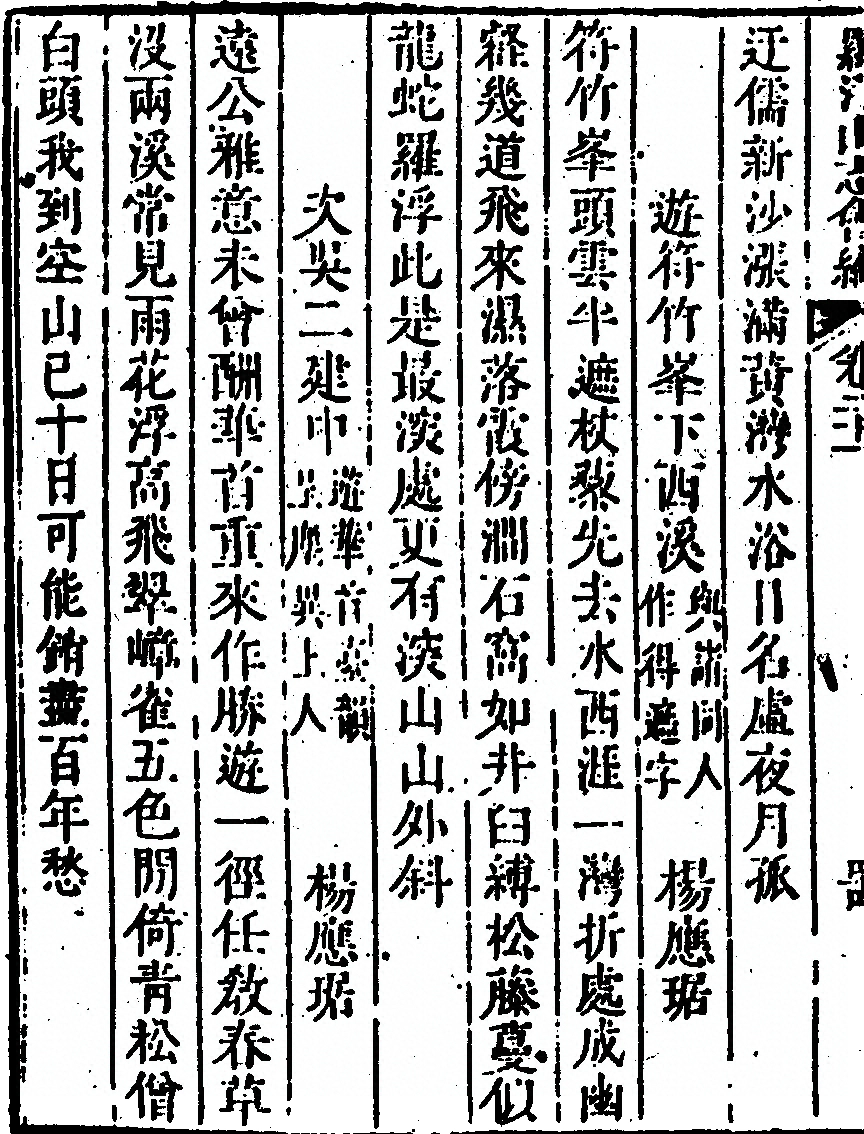 羅浮山志會編
迂儒新沙漲滿黃灣水浴日名虛夜月孤
遊符竹峯下西溪 與諸同人作得遮字 楊應琚
符竹峯頭雲半遮杖藜先去水西涯一灣折處成幽
壑幾道飛來濕落霞傍澗石窩如井臼縛松藤蔓似
龍蛇羅浮此是最深處更有深山山外斜
次吳二建中 遊華首臺韻呈異上人 楊應琚
遠公雅意未曾酬華首重來作勝遊一徑任教春草
沒兩溪常見雨花浮高飛翠嶂雀五色閒倚青松僧
白頭我到空山已十日可能銷盡百年愁